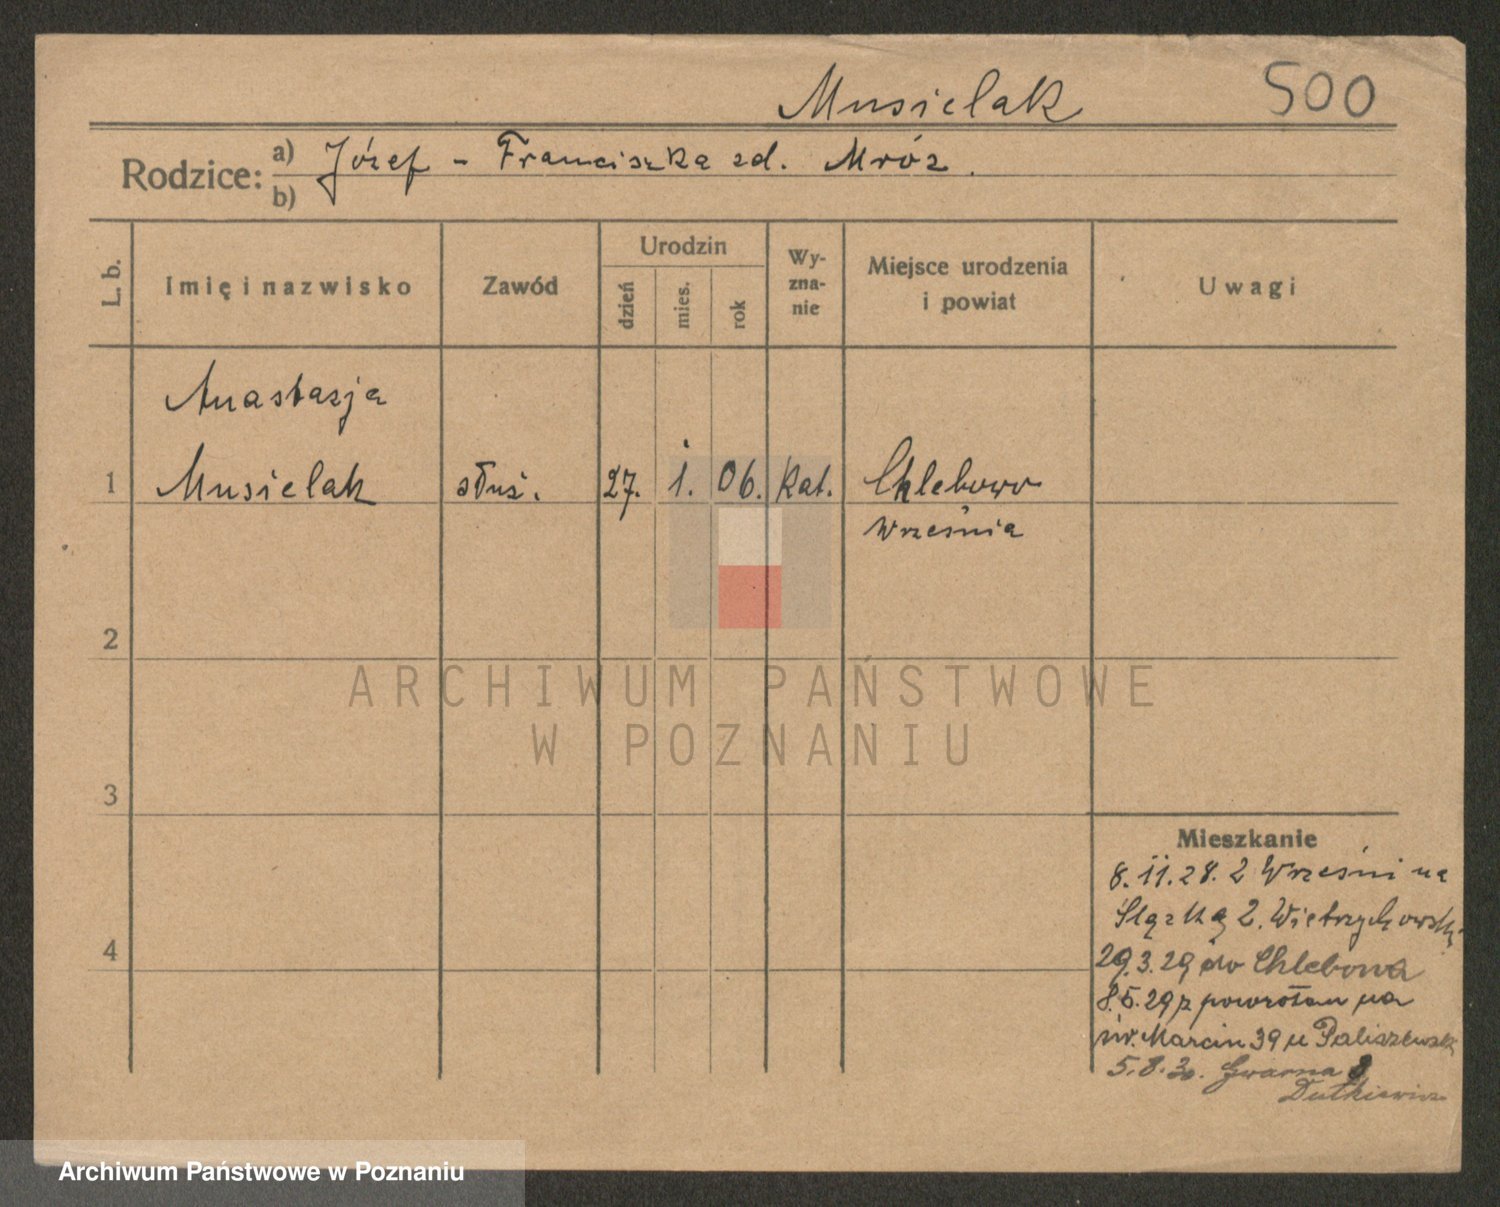 Musielak 500
Rodzice: a) Józef - Franciszka zd. Mróz.
b)
L. b. Imię i nazwisko Zawód Urodzin dzień mies. rok Wy-zna-nie Miejsce urodzenia i powiat Uwagi
Anastazja
1 Musielak służ. 27. i. 06. kat. Chlebowo
Września
2
ARCHIWUM PAŃSTWOWE
W POZNANIU
3
Mieszkanie
8.11.28. z Wrześni na
Śląską 2. Wietrzychowski
4
29.3.29 do Chlebowa
8.5.29 z powrotem na
św. Marcin 39 u Paliszewsk
5.8.30. Gwarna 8
Dutkiewicz
Archiwum Państwowe w Poznaniu